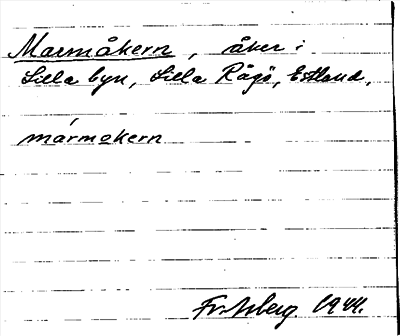 Marmåkern, åker i
Lilla byn, Lilla Rågö, Estland.
mármokern
1944.